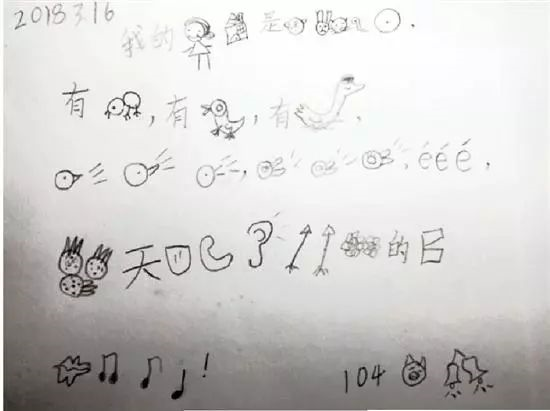 2018 3.16
我的 是 .
有 , 有 , 有 .
, , é é é .
天 的
! 104